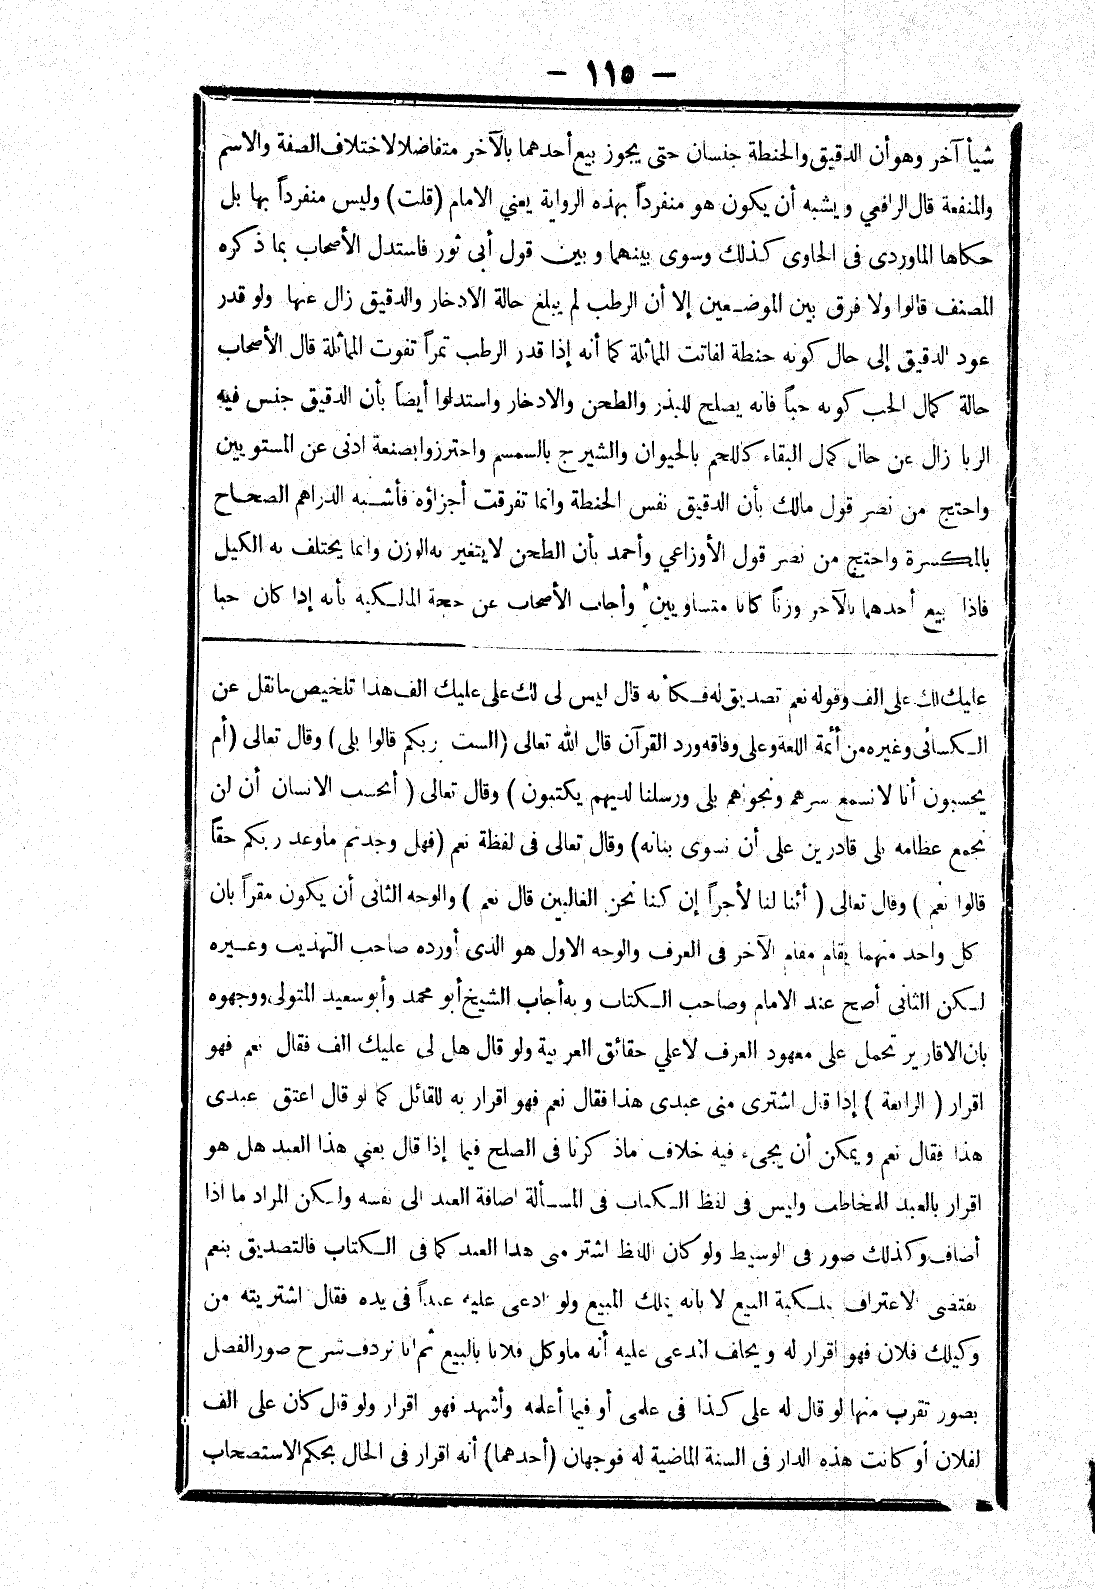 — ١١٥ —
شيأ آخر وهو أن الدقيق والحنطة جنسان حتى يجوز بيع أحدهما بالآخر متفاضلا لاختلاف الصفة والاسم
والمنفعة قال الرافعي ويشبه أن يكون هو منفرداً بهذه الرواية يعني الامام (قلت) وليس منفرداً بها بل
حكاها الماوردى فى الحاوى كذلك وسوى بينهما وبين قول أبى ثور فاستدل الأصحاب بما ذكره
المصنف قالوا ولا فرق بين الموضعين إلا أن الرطب لم يبلغ حالة الادخار والدقيق زال عنها ولو قدر
عود الدقيق إلى حال كونه حنطة لفاتت المماثلة كما أنه إذا قدر الرطب تمراً تفوت المماثلة قال الأصحاب
حالة كمال الحب كونه حباً فانه يصلح للبذر والطحن والادخار واستدلوا أيضاً بأن الدقيق جنس فيه
الربا زال عن حال كمال البقاء كاللحم بالحيوان والشيرج بالسمسم واحترزوا بصنعة ادنى عن المستويين
واحتج من نصر قول مالك بأن الدقيق نفس الحنطة وانما تفرقت أجزاؤه فأشبه الدراهم الصحاح
بالمكسرة واحتج من نصر قول الأوزاعي وأحمد بأن الطحن لا يتغير به الوزن وانما يختلف به الكيل
فاذا بيع أحدهما بالآخر وزنا كانا متساويين وأجاب الأصحاب عن حجة المالكية بأنه إذا كان حبا
عليك لك على الف وقوله نعم تصديق له فكأنه قال ليس لى لك على عليك الف هذا تلخيص ما نقل عن
الكسائى وغيره من أئمة اللغة وعلى وفاقه ورد القرآن قال الله تعالى (الست بربكم قالوا بلى) وقال تعالى (أم
يحسبون أنا لا نسمع سرهم ونجواهم بلى ورسلنا لديهم يكتبون) وقال تعالى (أيحسب الانسان أن لن
نجمع عظامه بلى قادرين على أن نسوى بنانه) وقال تعالى فى لفظة نعم (فهل وجدتم ما وعد ربكم حقاً
قالوا نعم) وقال تعالى (أئنا لنا لأجراً إن كنا نحن الغالبين قال نعم) والوجه الثانى أن يكون مقراً بان
كل واحد منهما يقام مقام الآخر فى العرف والوجه الاول هو الذى أورده صاحب التهذيب وغيره
لكن الثانى أصح عند الامام وصاحب الكتاب وبه أجاب الشيخ أبو محمد وأبو سعيد المتولى ووجهوه
بان الاقارير تحمل على معهود العرف لا علي حقائق العربية ولو قال هل لى عليك الف فقال نعم فهو
اقرار (الرابعة) إذا قال اشترى منى عبدى هذا فقال نعم فهو اقرار به للقائل كما لو قال اعتق عبدى
هذا فقال نعم ويمكن أن يجىء فيه خلاف مما ذكرنا فى الصلح فيما إذا قال بعني هذا العبد هل هو
اقرار بالعبد للمخاطب وليس فى لفظ الكتاب فى المسألة اضافة العبد الى نفسه ولكن المراد ما اذا
أضاف وكذلك صور فى الوسيط ولو كان اللفظ اشتر منى هذا العبد كما فى الكتاب فالتصديق بنعم
يقتضى الاعتراف بملكية البيع لا بانه يملك المبيع ولو ادعى عليه عبداً فى يده فقال اشتريته من
وكيلك فلان فهو اقرار له ويحلف المدعى عليه أنه ما وكل فلانا بالبيع ثم انا نردف شرح صور الفصل
بصور تقرب منها لو قال له على كذا فى علمى أو فيما أعلمه وأشهد فهو اقرار ولو قال كان على الف
لفلان أو كانت هذه الدار فى السنة الماضية له فوجهان (أحدهما) أنه اقرار فى الحال بحكم الاستصحاب